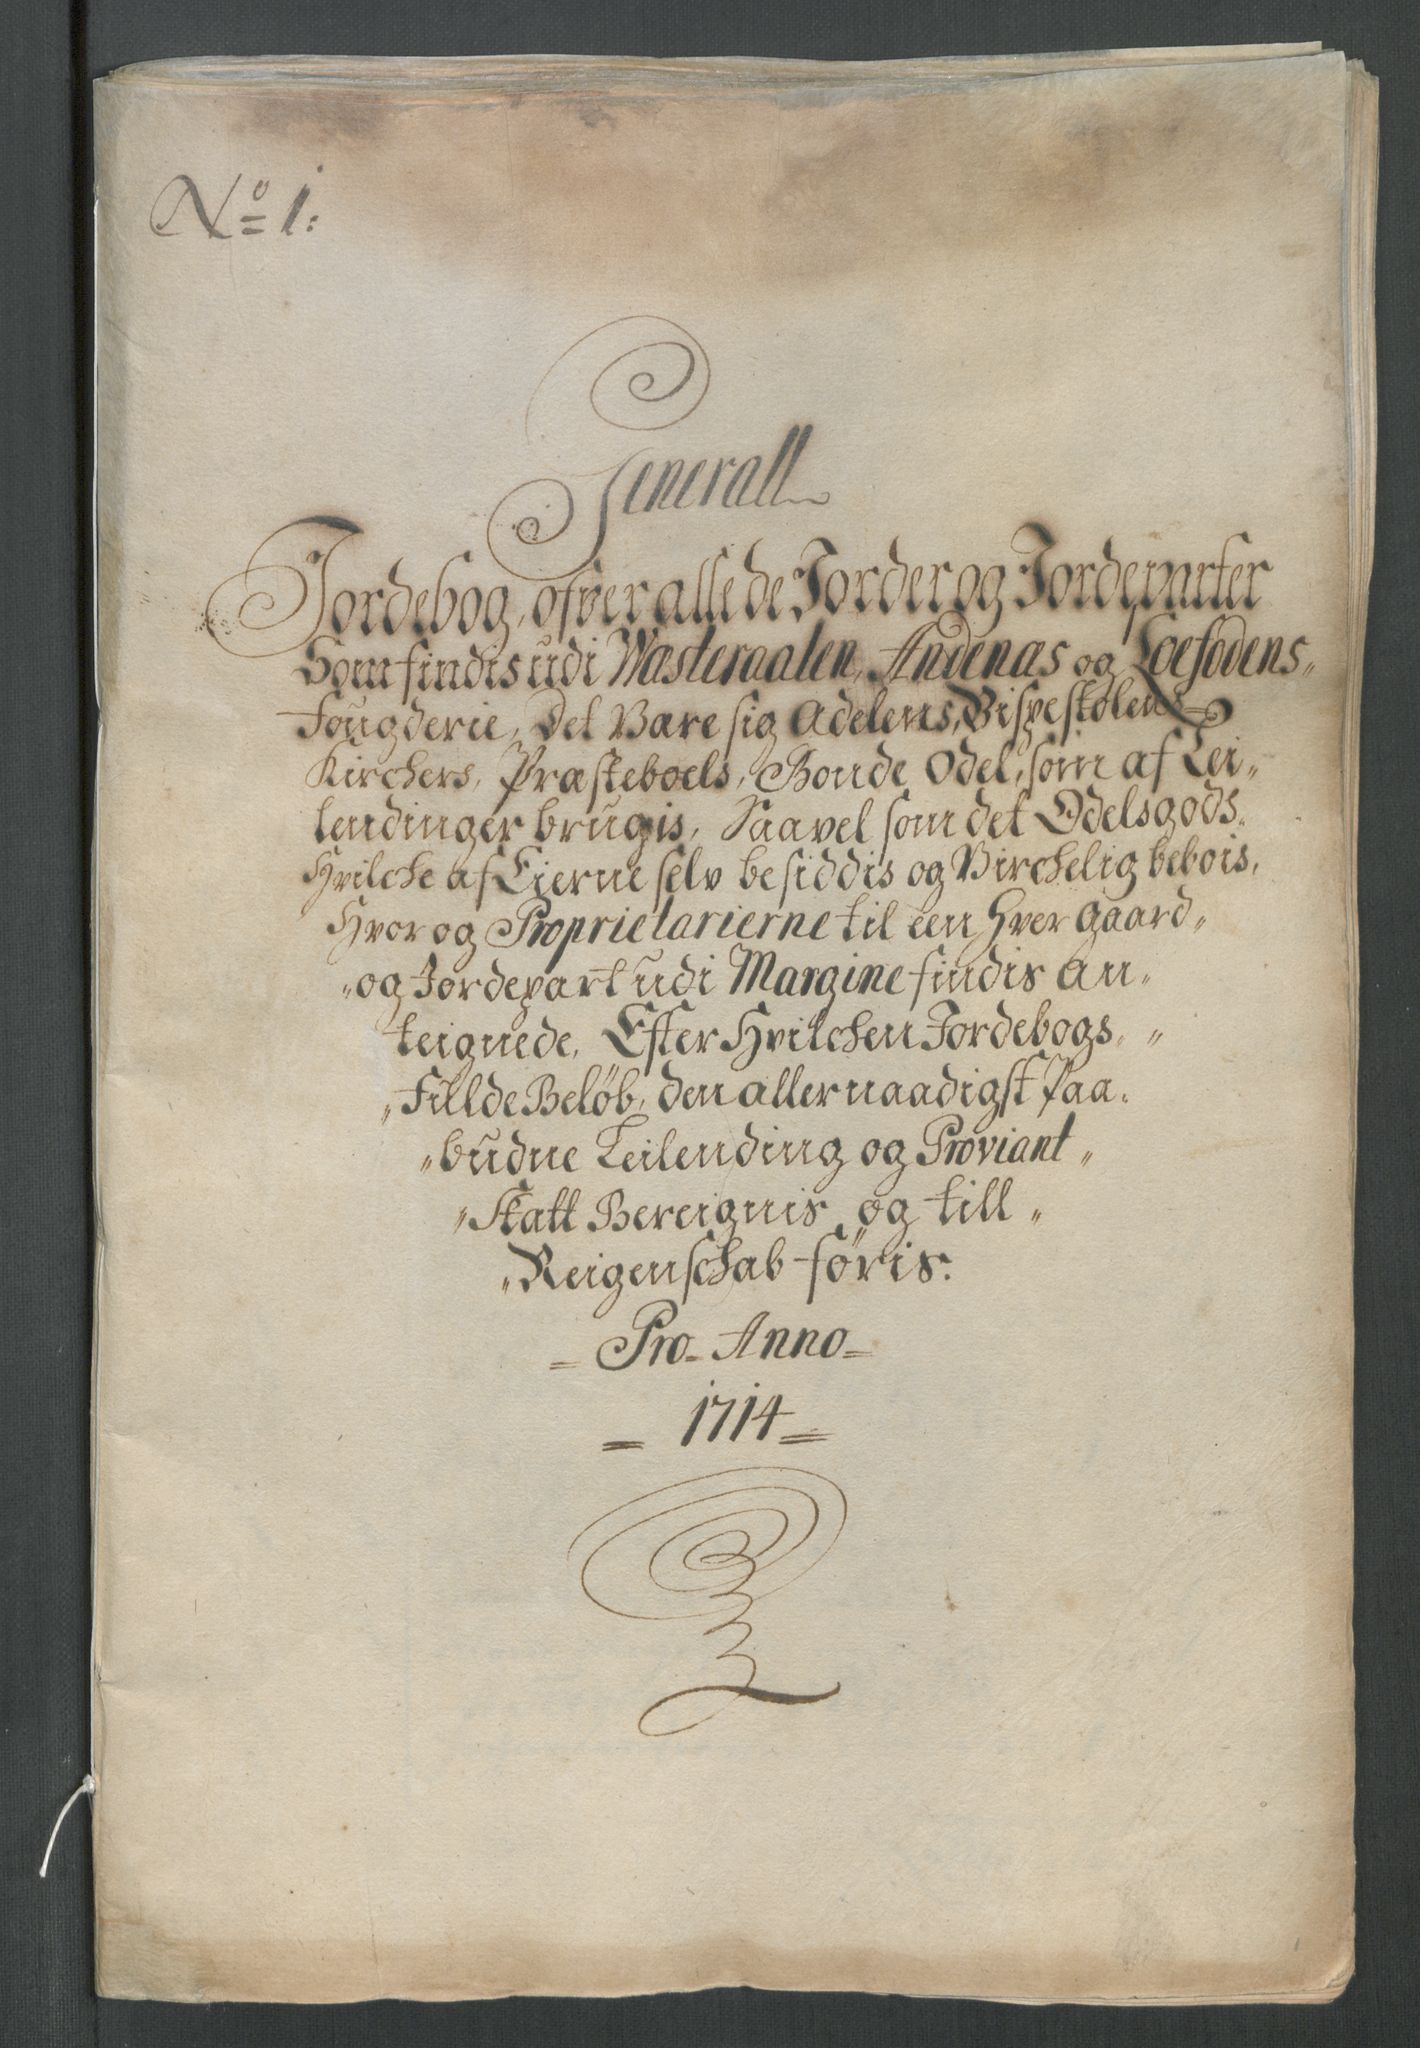 No 1:
Generall
Jordebog, ofver alle de Jorder og Jordeparter
Som findis udi Wæsteraalen, Andenæs og Loefodens
Fougderie, Det Være sig Adelens, Bispestolens
Kirchers, Præsteboels, Bonde Odel, som af Lei-
lendinger brugis, Saavel som det Odelsgods
Hvilche af Eierne selv besiddis og Virchelig bebois,
Hvor og Proprietarierne til een Hver gaard
og Jordepart udi Margine findis an-
teignede, Efter Hvilchen Jordebogs
Fillde Beløb, den allernaadigst Paa-
budne Leilending og Proviant
Skatt Bereignis og till
Reigenschab føris.
Pro Anno
1714